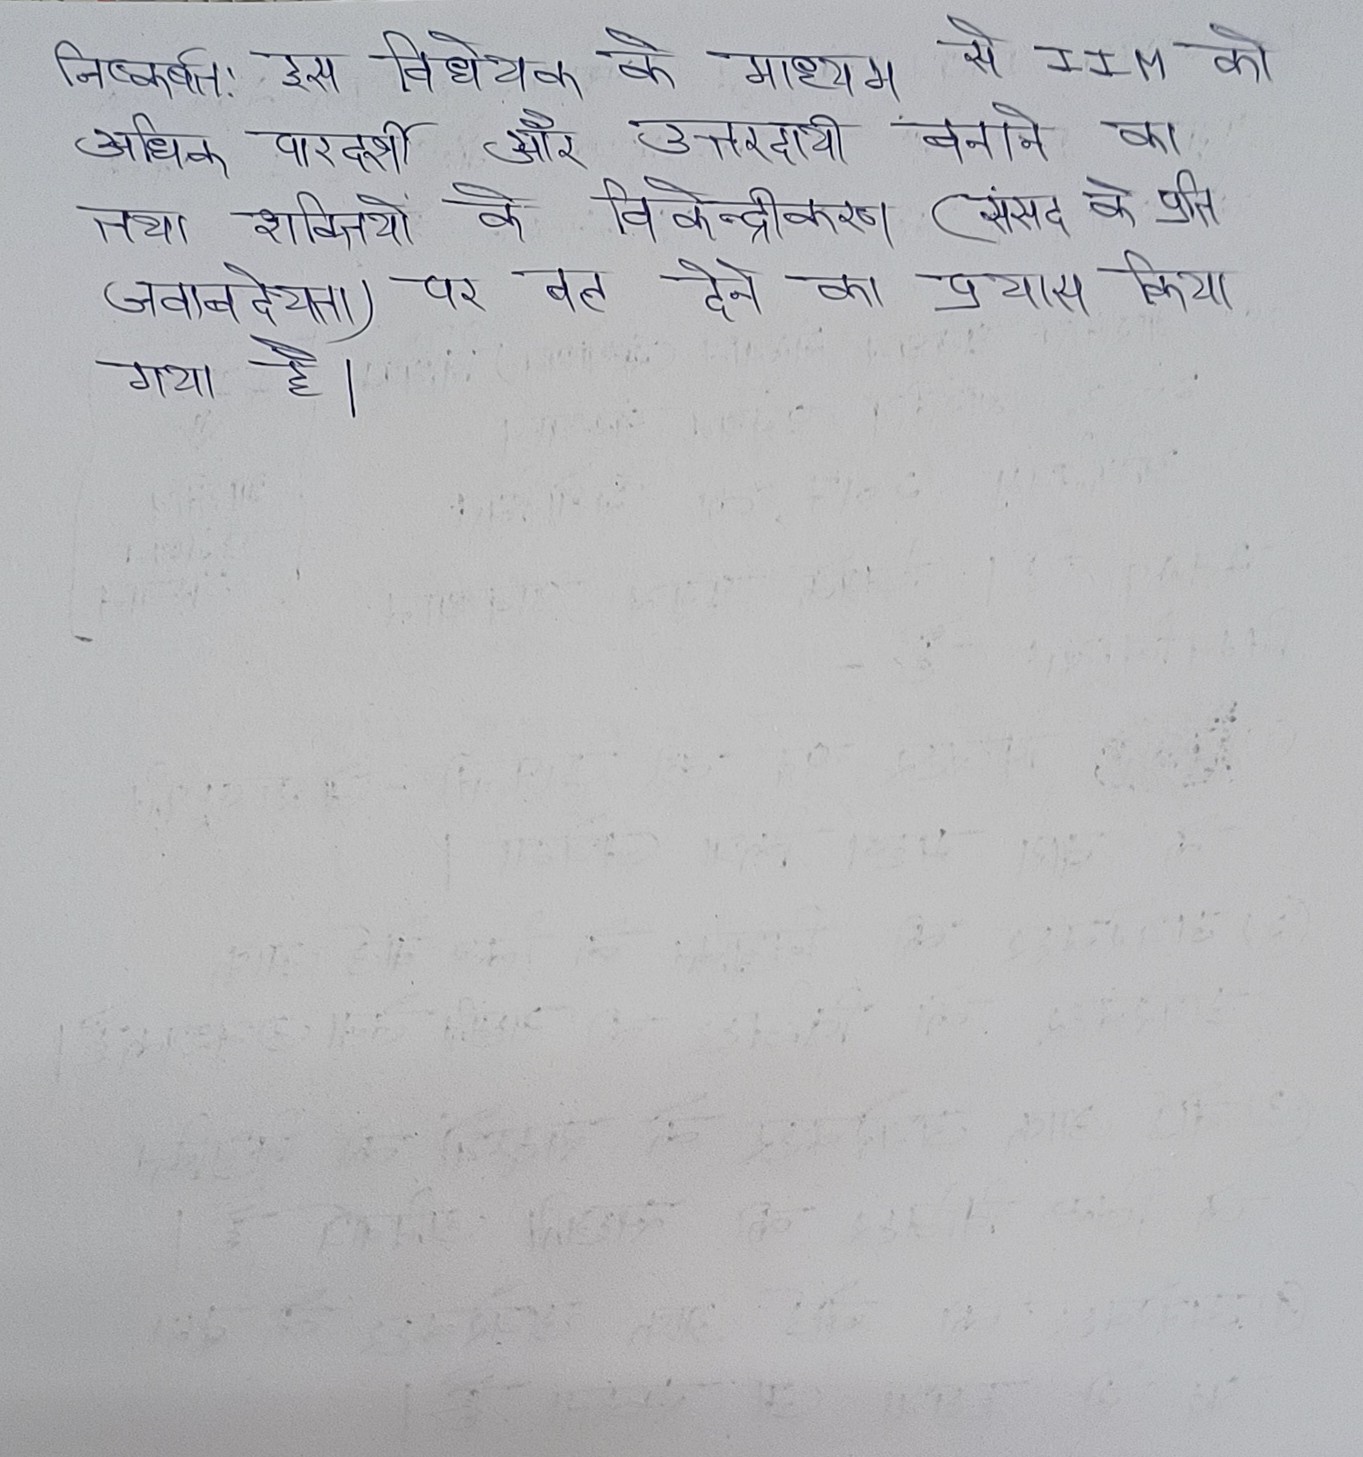 निष्कर्षत: इस विधेयक के माध्यम से IIM को
अधिक पारदर्शी और उत्तरदायी बनाने का
तथा शक्तियों के विकेन्द्रीकरण (संसद के प्रति
जवाबदेयता) पर बल देने का प्रयास किया
गया है।